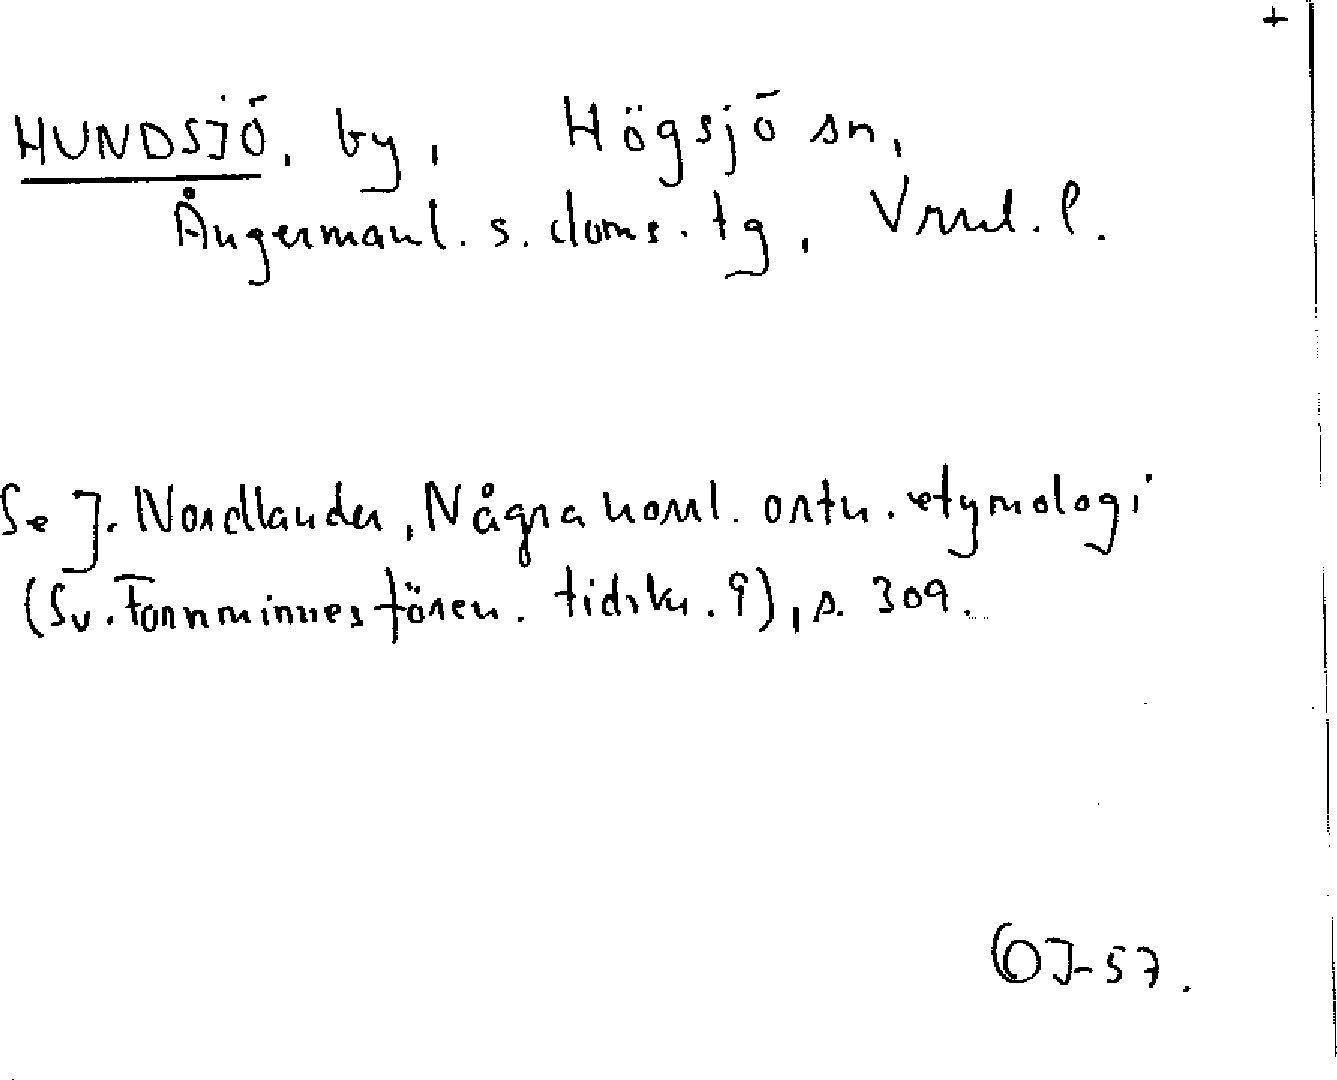 +
HUNDSJÖ, by, Högsjö sn,
Ångermanl. s. doms. tg, Vrnl. l.
Se J. Nordlander, Några norrl. ortn. etymologi
(Sv. Fornminnesfören. tidskr. 9), s. 309.
OJ-57.